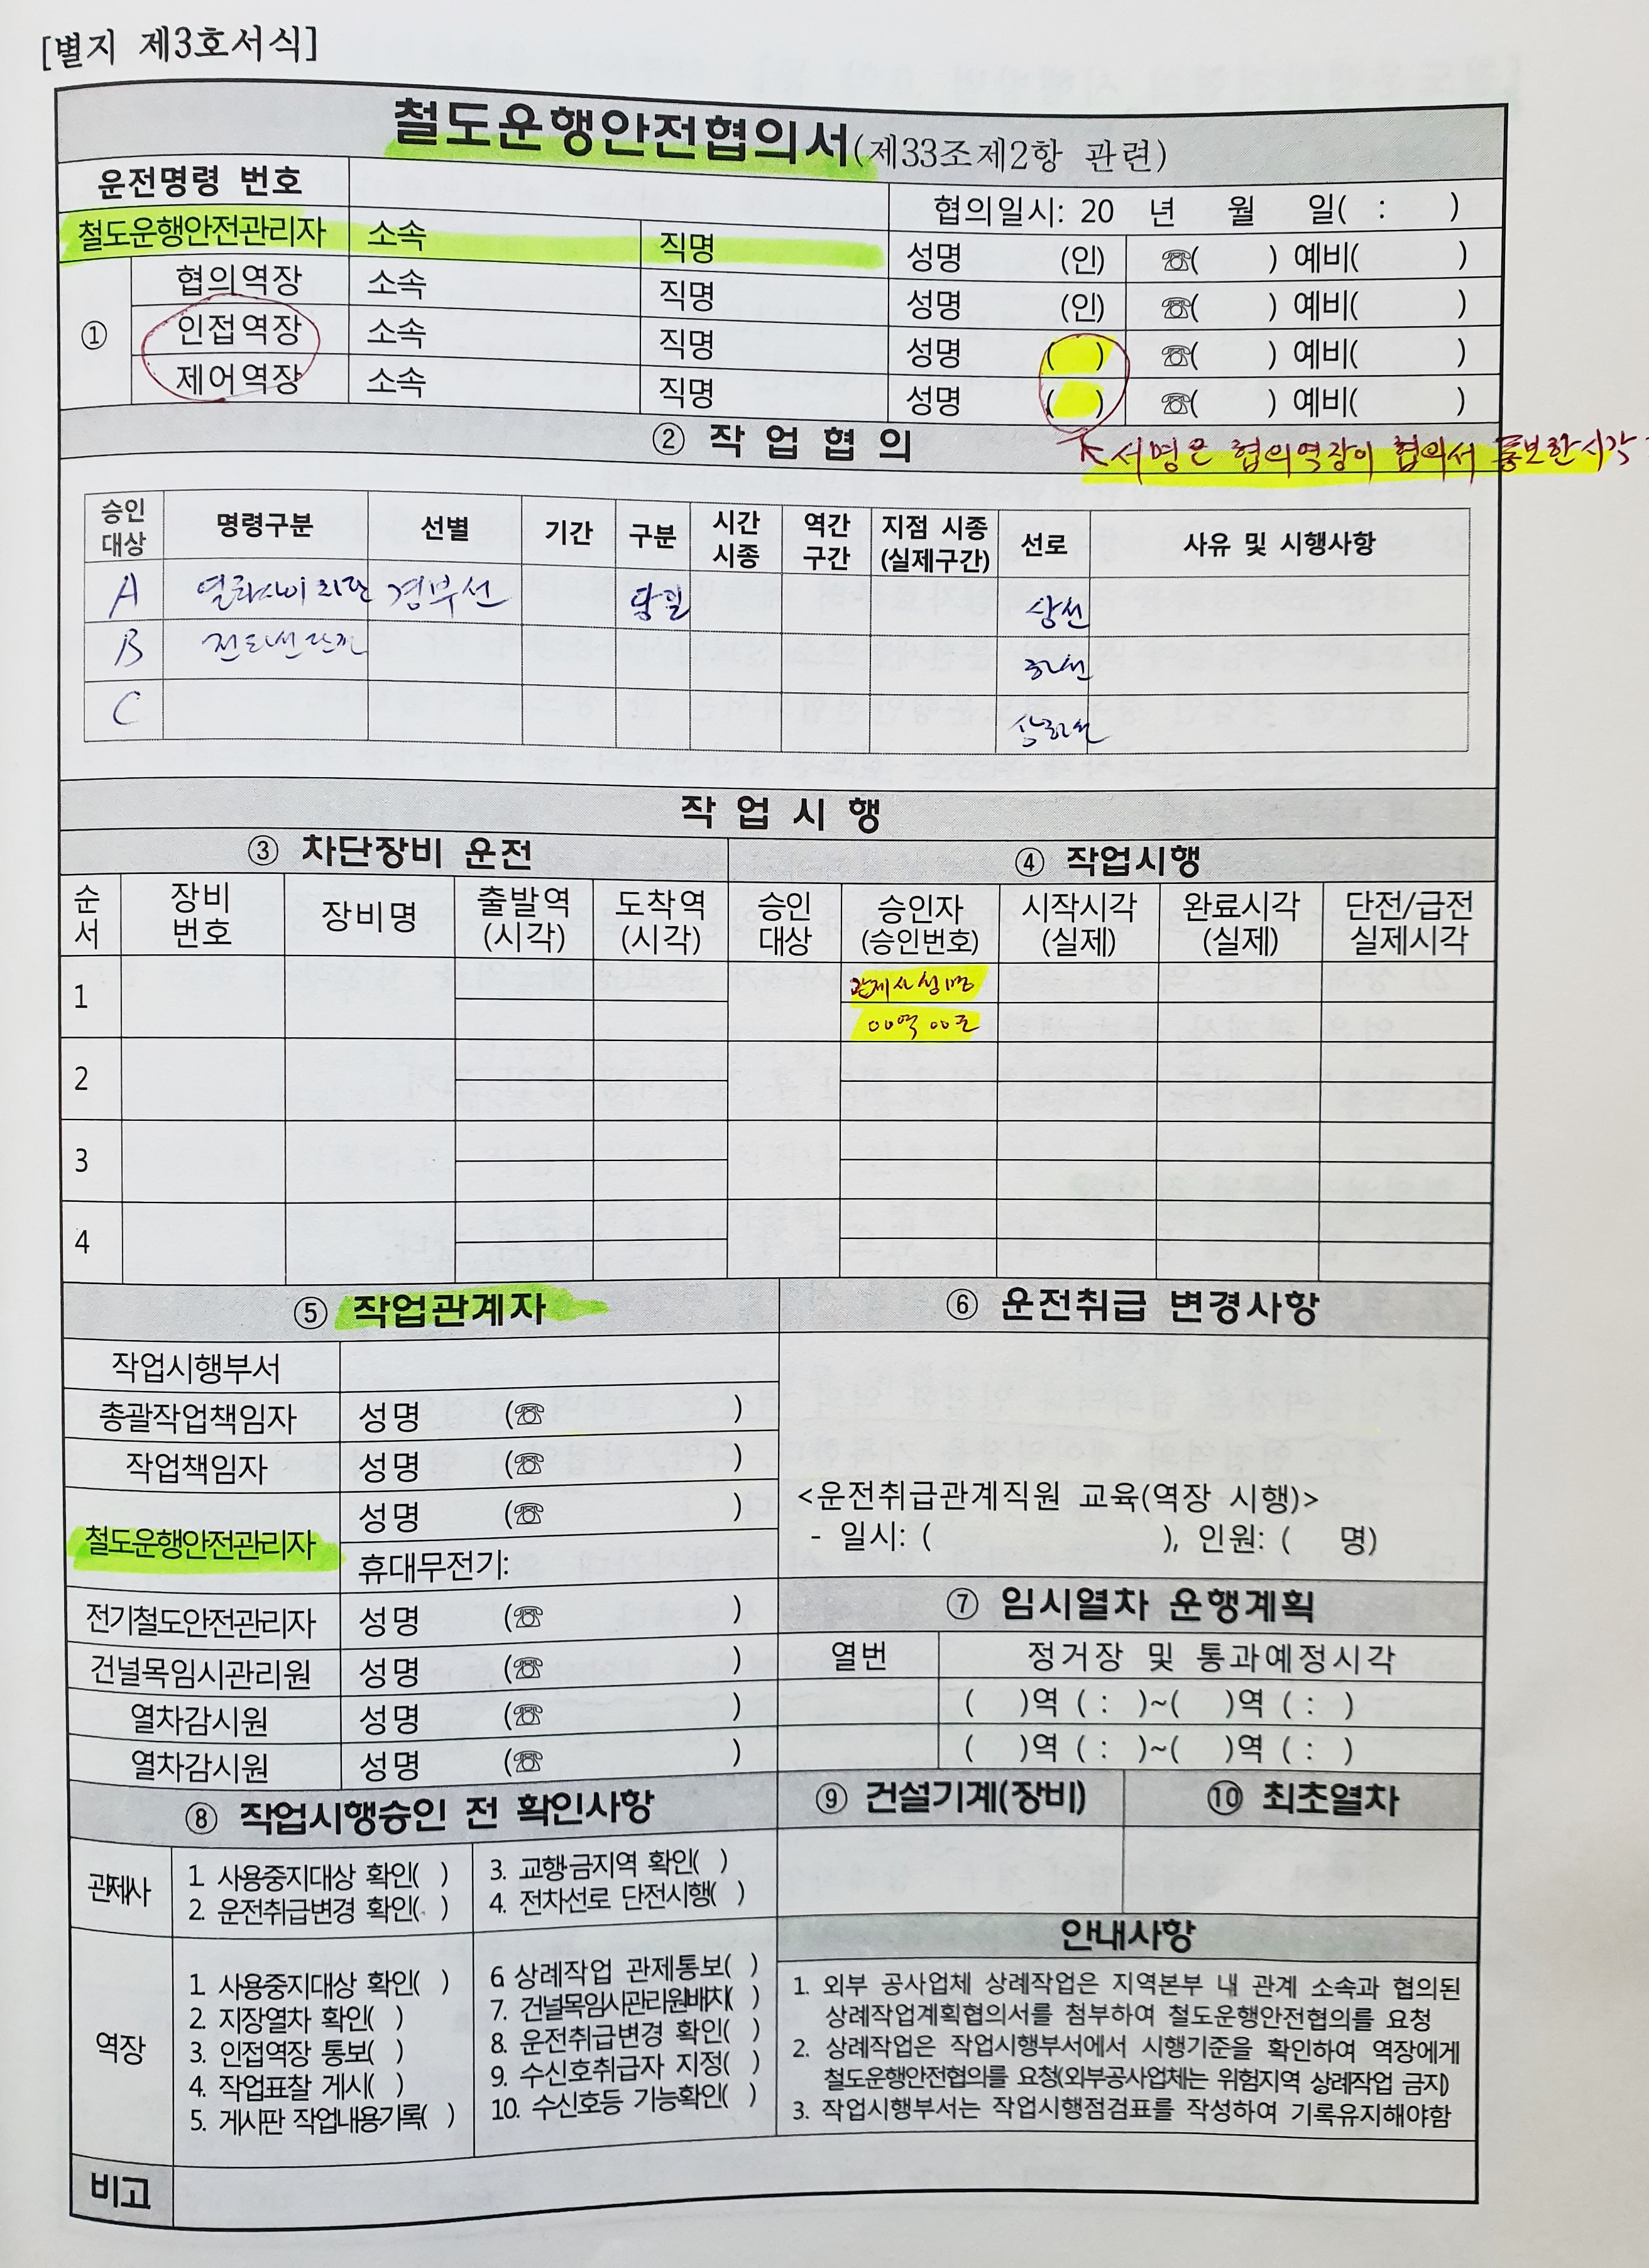 [별지 제3호서식]
철도운행안전협의서(제33조제2항 관련)
운전명령 번호 협의일시: 20 년 월 일( : )
철도운행안전관리자 소속 직명 성명 (인) ☏( ) 예비( )
① 협의역장 소속 직명 성명 (인) ☏( ) 예비( )
인접역장 소속 직명 성명 ( ) ☏( ) 예비( )
제어역장 소속 직명 성명 ( ) ☏( ) 예비( )
② 작 업 협 의
서명은 협의역장이 협의서 통보한 시각
승인 대상 명령구분 선별 기간 구분 시간 시종 역간 구간 지점 시종 (실제구간) 선로 사유 및 시행사항
A 열차사이 차단 경부선 당일 상선
B 전차선 단전 하선
C 상하선
작 업 시 행
③ 차단장비 운전 ④ 작업시행
순서 장비 번호 장비명 출발역 (시각) 도착역 (시각) 승인 대상 승인자 (승인번호) 시작시각 (실제) 완료시각 (실제) 단전/급전 실제시각
1 관제사 성명
00역 00조
2
3
4
⑤ 작업관계자 ⑥ 운전취급 변경사항
작업시행부서
총괄작업책임자 성명 (☏ )
작업책임자 성명 (☏ )
철도운행안전관리자 성명 (☏ )
휴대무전기:
<운전취급관계직원 교육(역장 시행)>
- 일시: ( ), 인원: ( 명)
전기철도안전관리자 성명 (☏ )
건널목임시관리원 성명 (☏ )
열차감시원 성명 (☏ )
열차감시원 성명 (☏ )
⑦ 임시열차 운행계획
열번 정거장 및 통과예정시각
( )역 ( : )~( )역 ( : )
( )역 ( : )~( )역 ( : )
⑧ 작업시행승인 전 확인사항 ⑨ 건설기계(장비) ⑩ 최초열차
관제사
1. 사용중지대상 확인( )
2. 운전취급변경 확인( )
3. 교행금지역 확인( )
4. 전차선로 단전시행( )
역장
1. 사용중지대상 확인( )
2. 지장열차 확인( )
3. 인접역장 통보( )
4. 작업표찰 게시( )
5. 게시판 작업내용기록( )
6. 상례작업 관제통보( )
7. 건널목임시관리원배치( )
8. 운전취급변경 확인( )
9. 수신호취급자 지정( )
10. 수신호등 기능확인( )
안내사항
1. 외부 공사업체 상례작업은 지역본부 내 관계 소속과 협의된
상례작업계획협의서를 첨부하여 철도운행안전협의를 요청
2. 상례작업은 작업시행부서에서 시행기준을 확인하여 역장에게
철도운행안전협의를 요청(외부공사업체는 위험지역 상례작업 금지)
3. 작업시행부서는 작업시행점검표를 작성하여 기록유지해야함
비고